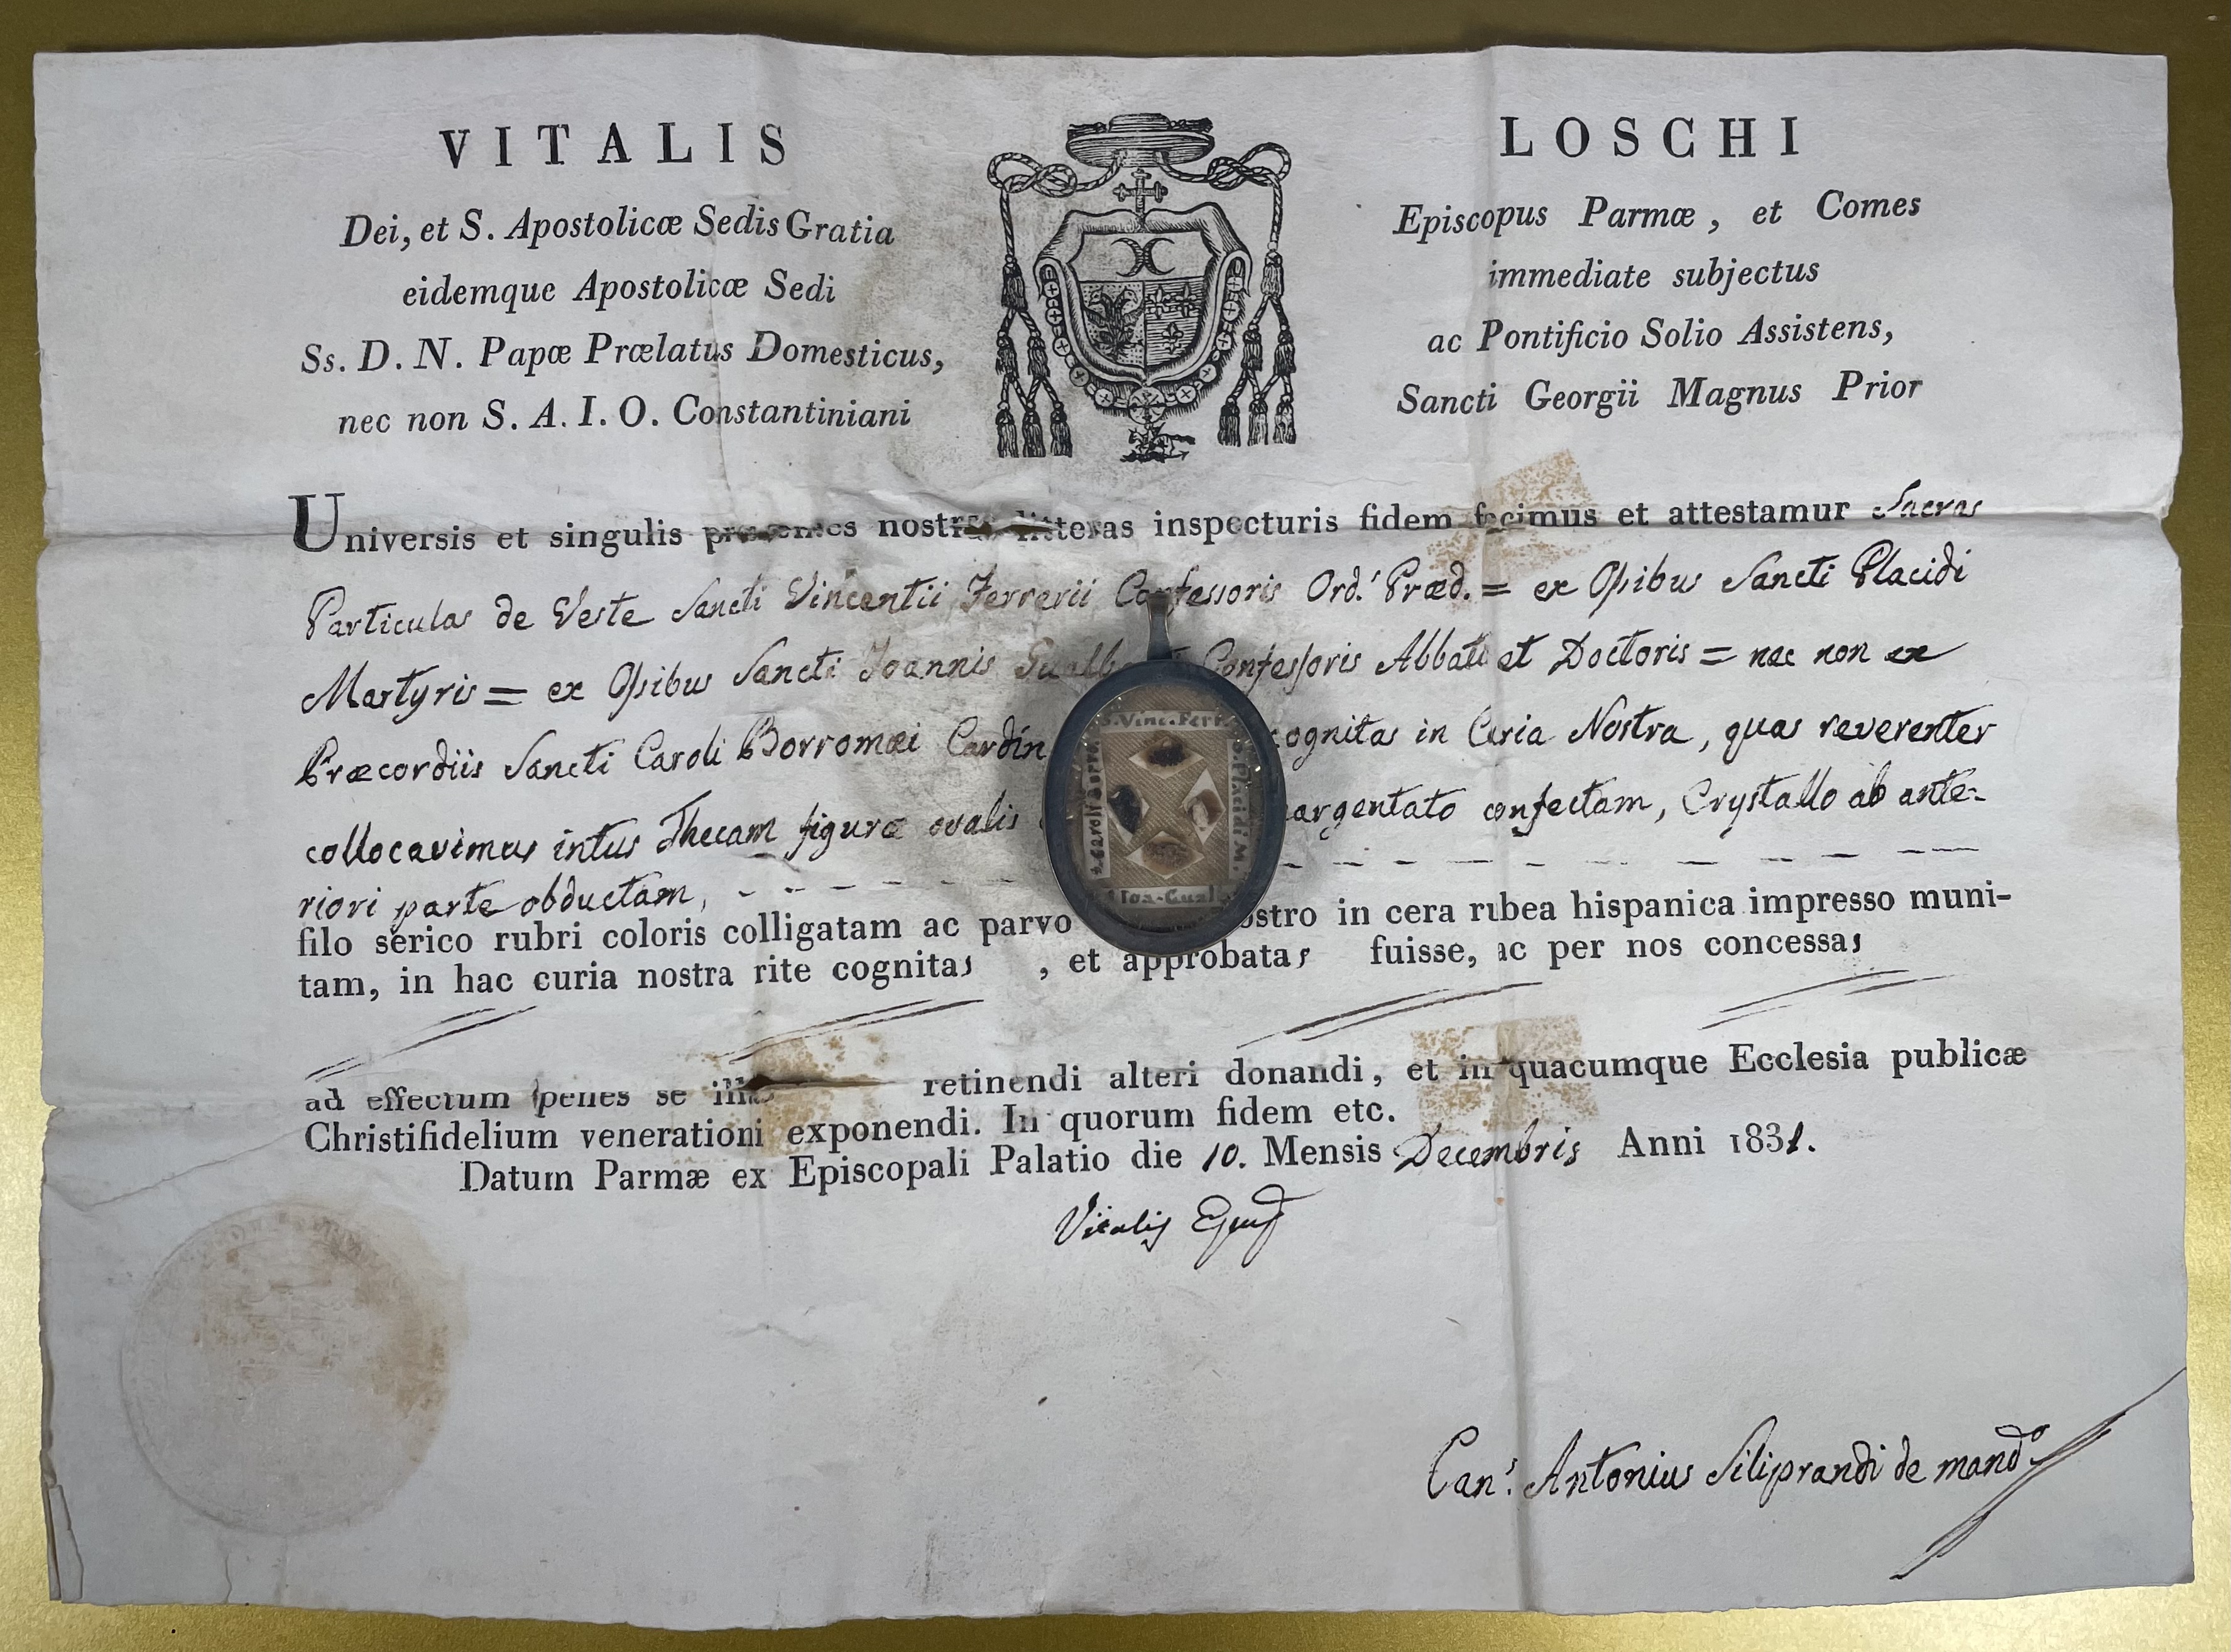 VITALIS LOSCHI
Dei, et S. Apostolicæ Sedis Gratia Episcopus Parmæ, et Comes
eidemque Apostolicæ Sedi immediate subjectus
Ss. D. N. Papæ Prælatus Domesticus, ac Pontificio Solio Assistens,
nec non S. A. I. O. Constantiniani Sancti Georgii Magnus Prior
Universis et singulis præsentes nostras litteras inspecturis fidem facimus et attestamur Sacras
Particulas de Veste Sancti Vincentii Ferrerii Confessoris Ord.s Præd. = ex Ossibus Sancti Placidi
Martyris = ex Ossibus Sancti Joannis Confessoris Abbatis et Doctoris = nec non ex
Præcordiis Sancti Caroli Borromæi Cardin ognitas in Curia Nostra, quas reverenter
collocavimus intus Thecam figuræ ovalis argentato confectam, Crystallo ab ante-
riori parte obductam,
filo serico rubri coloris colligatam ac parvo ostro in cera rubea hispanica impresso muni-
tam, in hac curia nostra rite cognitas, et approbatas fuisse, ac per nos concessas
ad effectum penes se illas retinendi alteri donandi, et in quacumque Ecclesia publicæ
Christifidelium venerationi exponendi. In quorum fidem etc.
Datum Parmæ ex Episcopali Palatio die 10. Mensis Decembris Anni 1831.
Vitalis Epus
Can.s Antonius Siliprandi de mand.o
S. Vinc. Ferr.
S. Placidi. M.
S. Caroli Borro.
Ioa. Gual